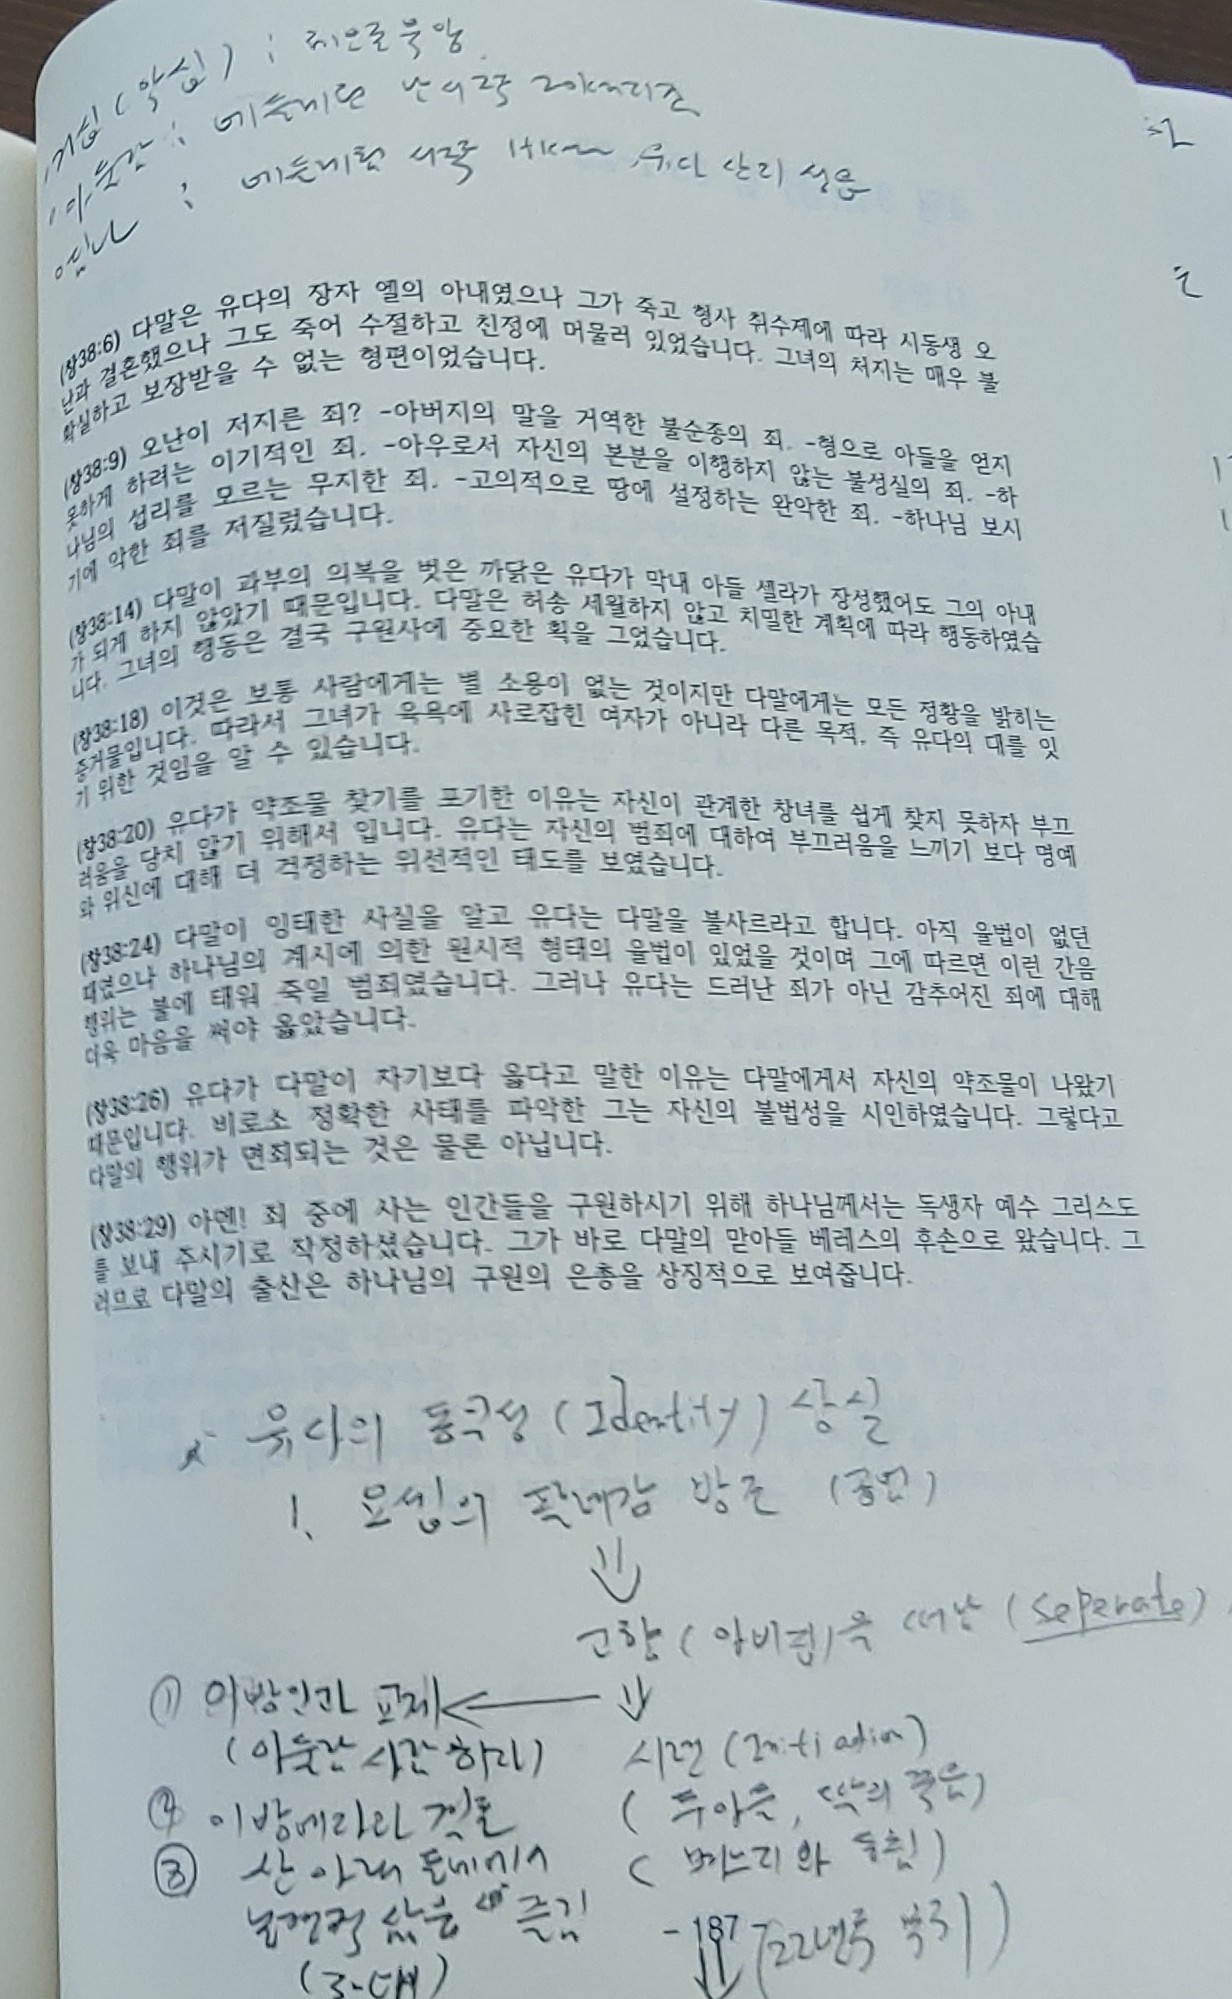 거십(악십) :
아둘람 : 베들레헴 남서쪽 20km지존
딤나 : 베들레헴 서쪽 14km 유다 산리 성읍
(창38:6) 다말은 유다의 장자 엘의 아내였으나 그가 죽고 형사 취수제에 따라 시동생 오
난과 결혼했으나 그도 죽어 수절하고 친정에 머물러 있었습니다. 그녀의 처지는 매우 불
확실하고 보장받을 수 없는 형편이었습니다.
(창38:9) 오난이 저지른 죄? -아버지의 말을 거역한 불순종의 죄. -형으로 아들을 얻지
못하게 하려는 이기적인 죄. -아우로서 자신의 본분을 이행하지 않는 불성실의 죄. -하
나님의 섭리를 모르는 무지한 죄. -고의적으로 땅에 설정하는 완악한 죄. -하나님 보시
기에 악한 죄를 저질렀습니다.
(창38:14) 다말이 과부의 의복을 벗은 까닭은 유다가 막내 아들 셀라가 장성했어도 그의 아내
가 되게 하지 않았기 때문입니다. 다말은 허송 세월하지 않고 치밀한 계획에 따라 행동하였습
니다. 그녀의 행동은 결국 구원사에 중요한 획을 그었습니다.
(창38:18) 이것은 보통 사람에게는 별 소용이 없는 것이지만 다말에게는 모든 정황을 밝히는
증거물입니다. 따라서 그녀가 육욕에 사로잡힌 여자가 아니라 다른 목적, 즉 유다의 대를 잇
기 위한 것임을 알 수 있습니다.
(창38:20) 유다가 약조물 찾기를 포기한 이유는 자신이 관계한 창녀를 쉽게 찾지 못하자 부끄
러움을 당치 않기 위해서 입니다. 유다는 자신의 범죄에 대하여 부끄러움을 느끼기 보다 명예
와 위신에 대해 더 걱정하는 위선적인 태도를 보였습니다.
(창38:24) 다말이 잉태한 사실을 알고 유다는 다말을 불사르라고 합니다. 아직 율법이 없던
때였으나 하나님의 계시에 의한 원시적 형태의 율법이 있었을 것이며 그에 따르면 이런 간음
행위는 불에 태워 죽일 범죄였습니다. 그러나 유다는 드러난 죄가 아닌 감추어진 죄에 대해
더욱 마음을 써야 옳았습니다.
(창38:26) 유다가 다말이 자기보다 옳다고 말한 이유는 다말에게서 자신의 약조물이 나왔기
때문입니다. 비로소 정확한 사태를 파악한 그는 자신의 불법성을 시인하였습니다. 그렇다고
다말의 행위가 면죄되는 것은 물론 아닙니다.
(창38:29) 아멘! 죄 중에 사는 인간들을 구원하시기 위해 하나님께서는 독생자 예수 그리스도
를 보내 주시기로 작정하셨습니다. 그가 바로 다말의 맏아들 베레스의 후손으로 왔습니다. 그
러므로 다말의 출산은 하나님의 구원의 은총을 상징적으로 보여줍니다.
유다의 동극성 (Identity) 상실
1. 요셉의 팔레감 방존 (공범)
고향 (아비집)을 떠남 (seperate)
① 이방인과 교제
(아둘람 사람 히라) 시련 (Initiation)
② 이방여라와 결혼 (두아들, 아내의 죽음)
③ 산 아래 동네에서 (며느리와 동침)
남전적 삶을 즐김 (22년후 복귀)
- 187 -
(3-대)